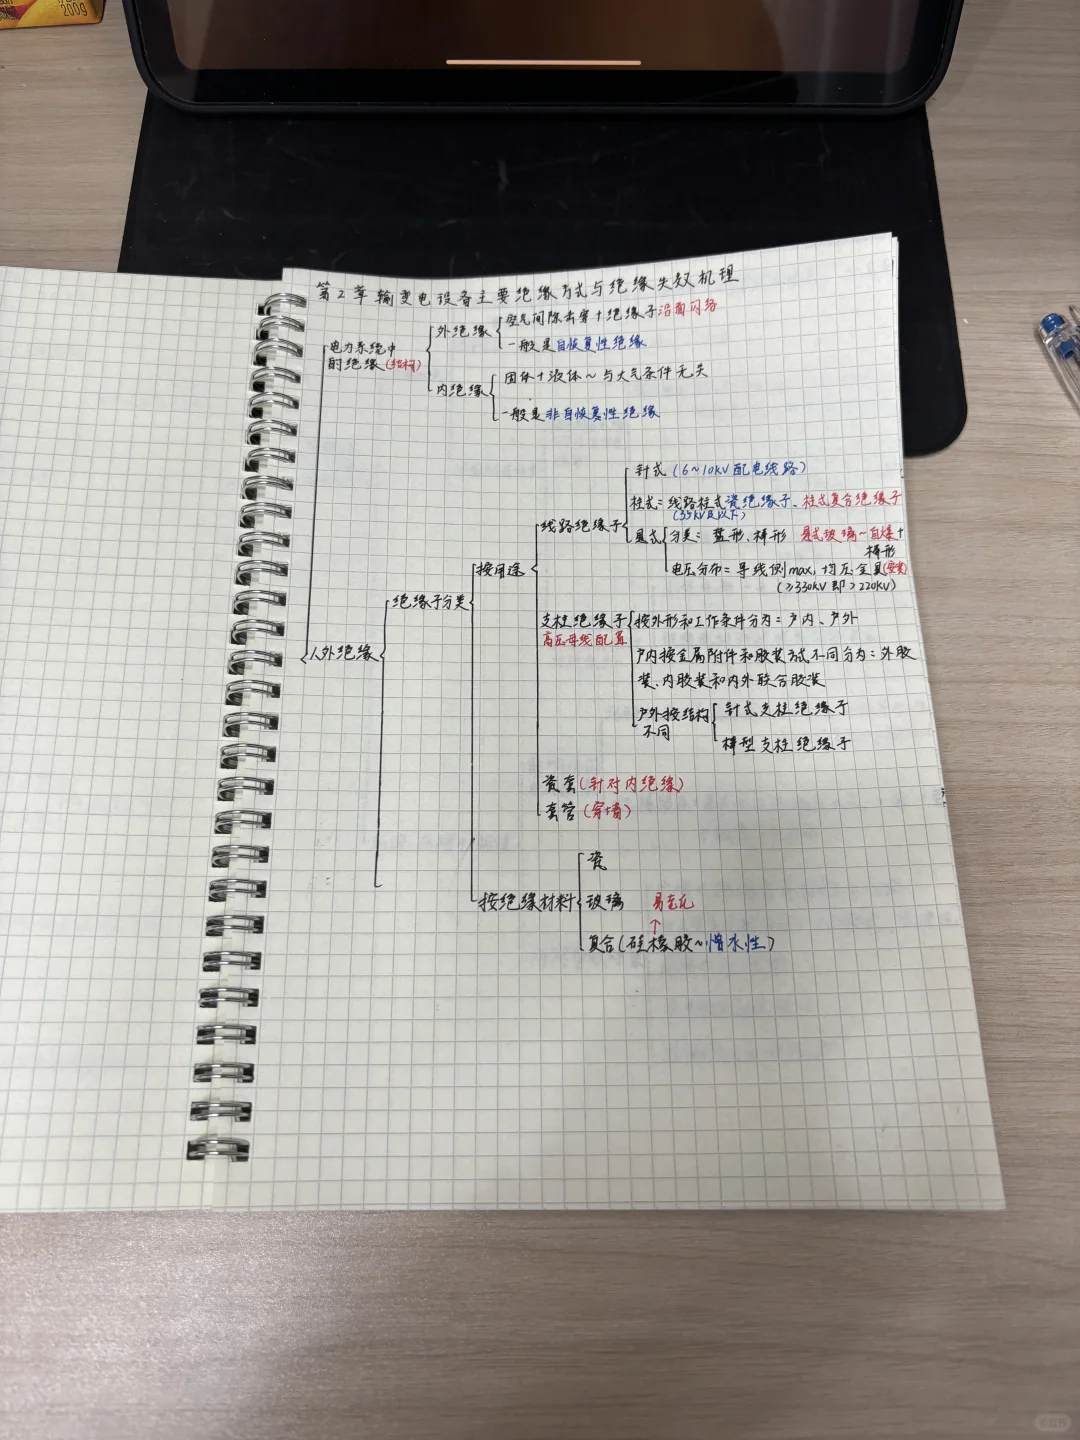 200g
第2章 输变电设备主要绝缘方式与绝缘失效机理
电力系统中
的绝缘(结构)
外绝缘
空气间隙击穿+绝缘子沿面闪络
一般是自恢复性绝缘
内绝缘
固体+液体~与大气条件无关
一般是非自恢复性绝缘
外绝缘
绝缘子分类
按用途
线路绝缘子
针式(6~10kV配电线路)
柱式:线路柱式瓷绝缘子、柱式复合绝缘子
(35kV及以下)
悬式
分类:盘形、棒形 悬式玻璃~自爆+
棒形
电压分布:导线侧max,均压金具(安装)
(≥330kV即>220kV)
支柱绝缘子
高压母线配置
按外形和工作条件分为:户内、户外
户内按金属附件和胶装方式不同分为:外胶
装、内胶装和内外联合胶装
户外按结构
不同
针式支柱绝缘子
棒型支柱绝缘子
瓷套(针对内绝缘)
套管(穿墙)
按绝缘材料
瓷
玻璃 易老化
↑
复合(硅橡胶~憎水性)
小红书